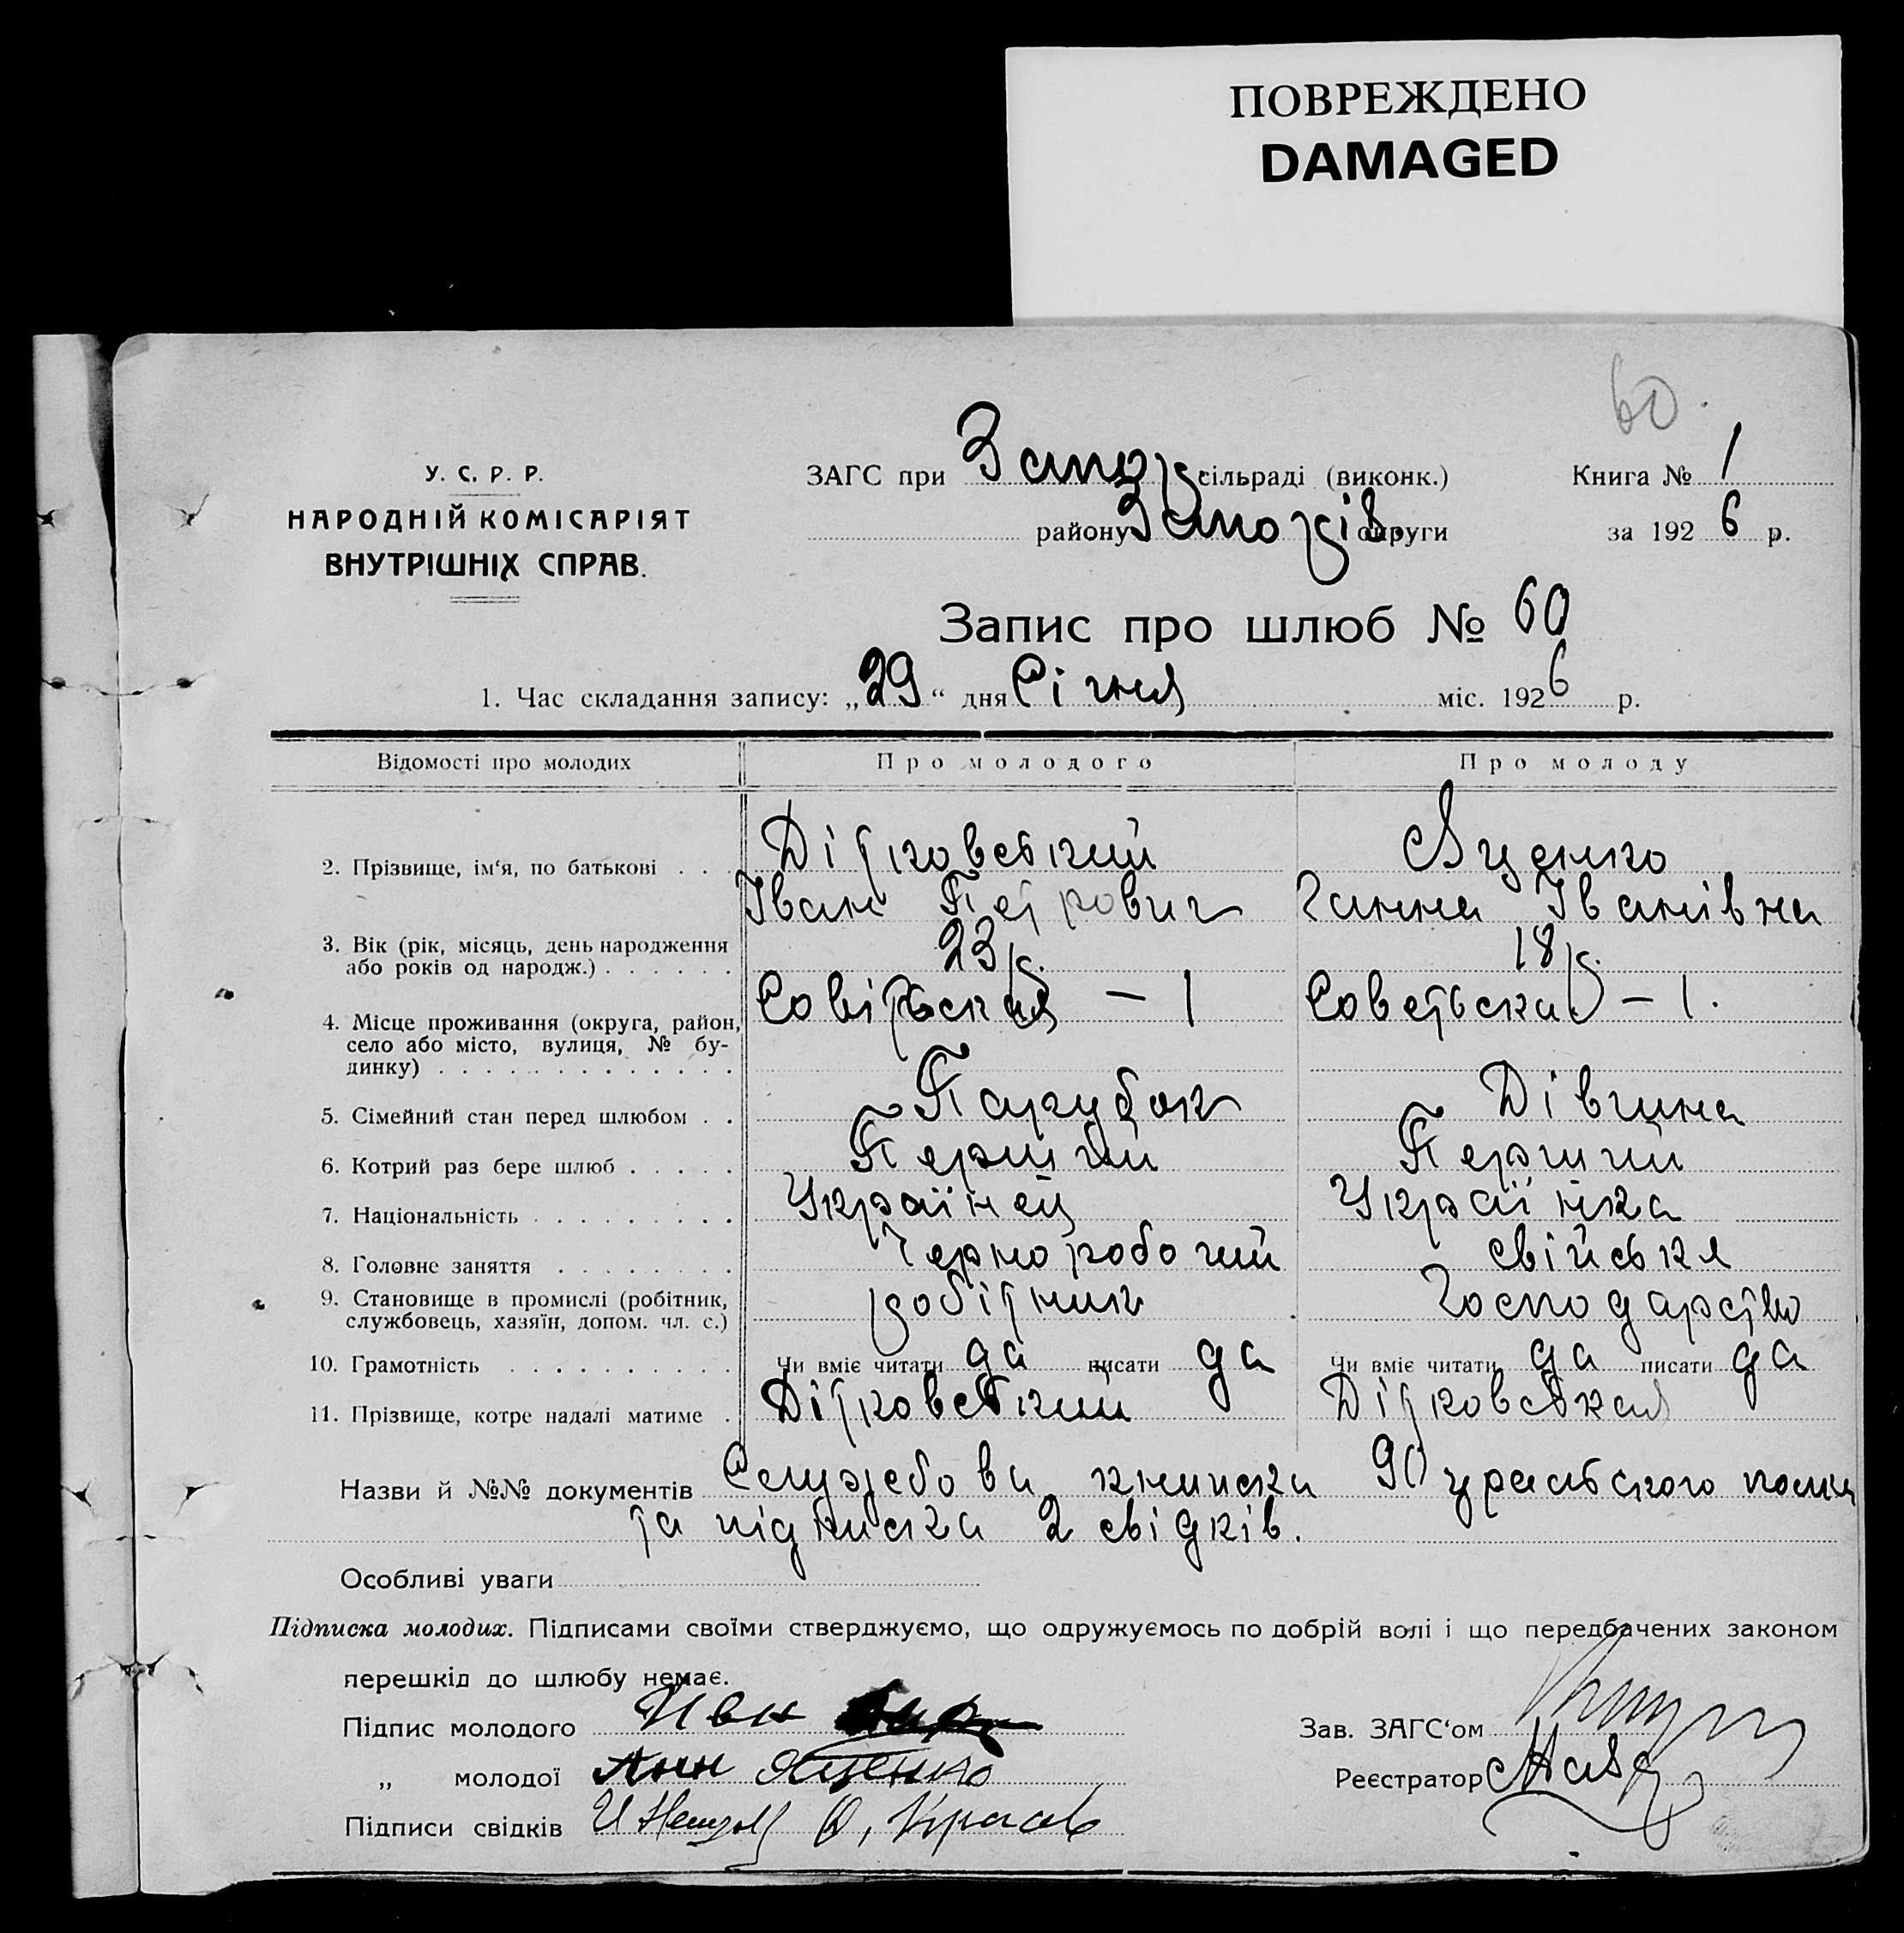 ПОВРЕЖДЕНО
DAMAGED
60.
У. С. Р. Р.
НАРОДНІЙ КОМІСАРІЯТ
ВНУТРІШНІХ СПРАВ.
ЗАГС при Запор сільраді (виконк.)
району Запоріз. округи
Книга № 1
за 1926 р.
Запис про шлюб № 60
1. Час складання запису: „29“ дня Січня міс. 1926 р.
Відомості про молодих Про молодого Про молоду
2. Прізвище, ім‘я, по батькові . . . Дітковський Яценко
Іван Петрович Ганна Іванівна
3. Вік (рік, місяць, день народження або років од народж.) . . . . . . 23 р. 18 р.
4. Місце проживання (округа, район, село або місто, вулиця, № будинку) . . . . . . . . . . . . . Совітьская — 1 Советьская — 1.
5. Сімейний стан перед шлюбом . . Парубок Дівчина
6. Котрий раз бере шлюб . . . . . Перший Перший
7. Національність . . . . . . . . . Українец Українка
8. Головне заняття . . . . . . . . Чернорабочий свійське
9. Становище в промислі (робітник, службовець, хазяїн, допом. чл. с.) робітник господарство
10. Грамотність . . . . . . . . . . Чи вміє читати да писати да Чи вміє читати да писати да
11. Прізвище, котре надалі матиме . Дітковський Дітковська
Назви й №№ документів Службова книжка 90 уральского полка
та підписка 2 свідків.
Особливі уваги
Підписка молодих. Підписами своїми стверджуємо, що одружуємось по добрій волі і що передбачених законом
перешкід до шлюбу немає.
Підпис молодого Ивн
Зав. ЗАГС‘ом
„ молодої Анн Яценко
Реєстратор
Підписи свідків